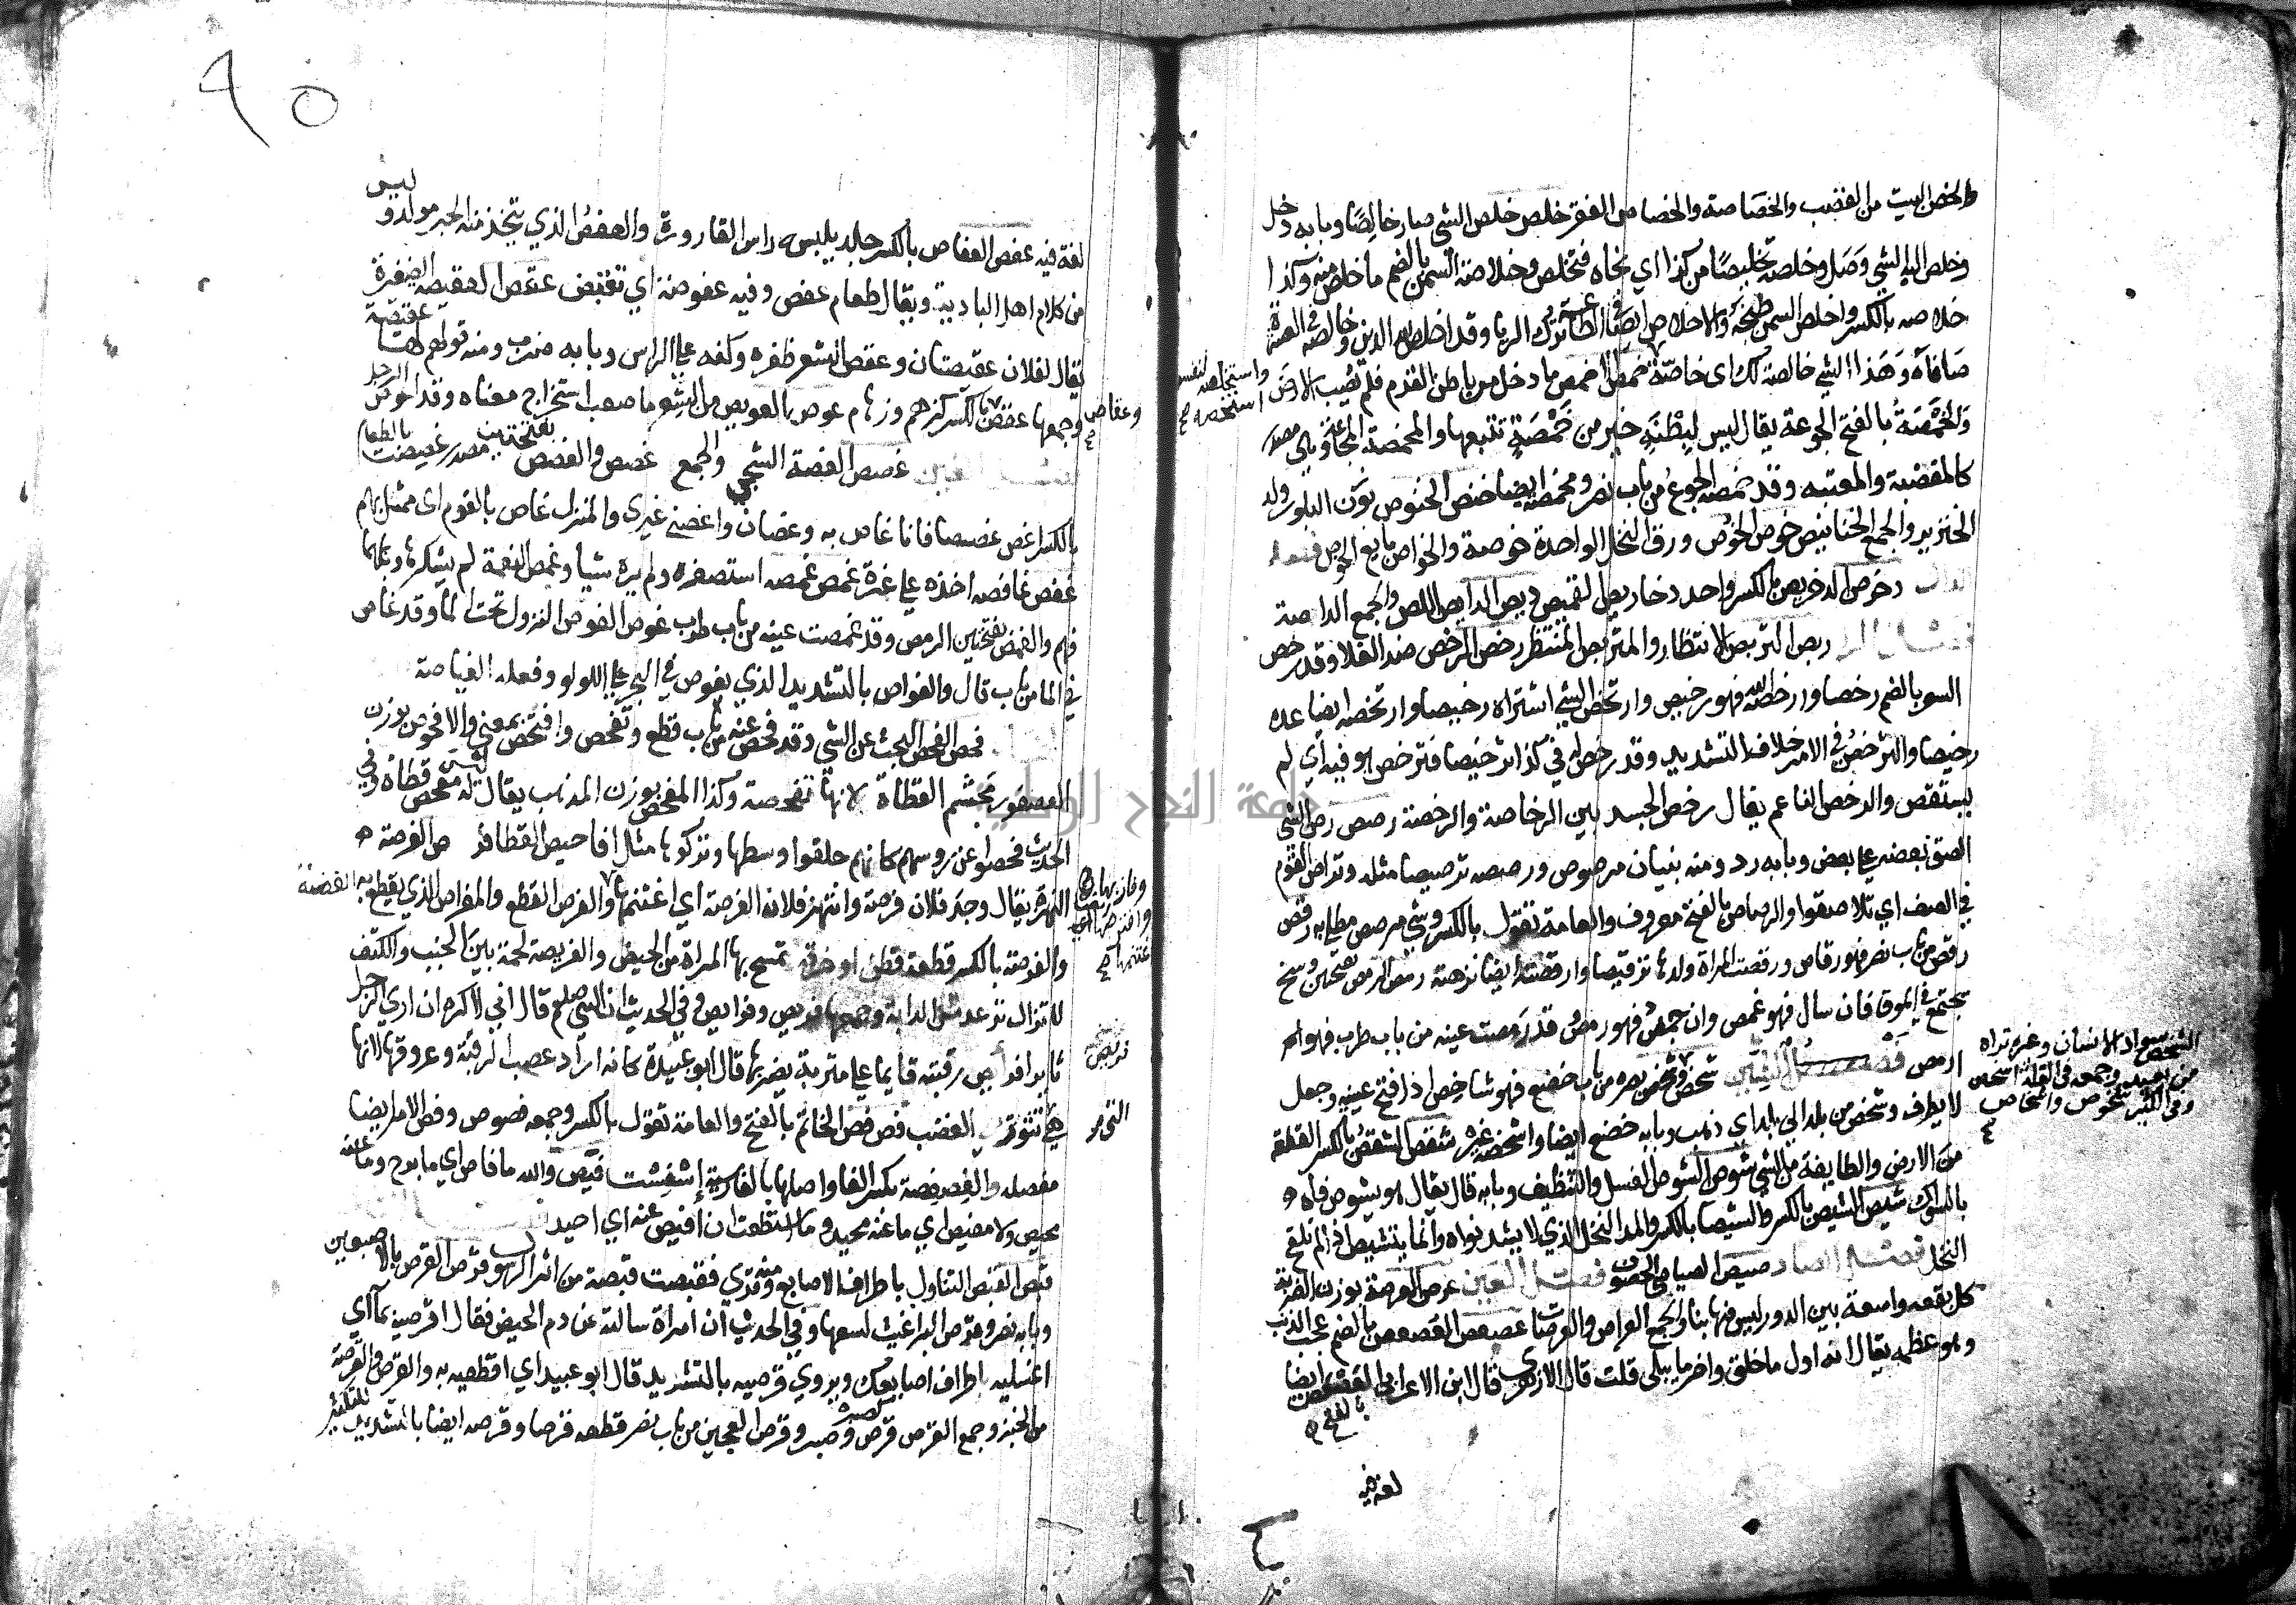 والخص البيت من القصب والخصاصة والخصاص الفقر خلص خلص الشي صار خالصا وبابه دخل
وخلص اليه الشي وصل وخلصه تخليصا من كذا اي نجاه فتخلص وخلاصة السمن بالضم ما خلص منه وكذا
خلاصه بالكسر واخلص السمن طبخه والاخلاص ايضا في الطاعة ترك الريا وقد اخلص لله الدين وخالصه في العشرة
صافاه وهذا الشي خالصة لك اي خاصة خمص الاخمص ما دخل من باطن القدم فلم يصب الارض
واستخلصه لنفسه
استخصه صح
والخمصة بالفتح الجوعة يقال ليس للبطنة خير من خمصة تتبعها والمخمصة المجاعة وهي مصدر
كالمغضبة والمعتبه وقد خمصه الجوع من باب نصر ومخمصة ايضا خنص الخنوص بوزن البلور ولد
الخنزير والجمع الخنانيص خوص الخوص ورق النخل الواحدة خوصة والخواص بايع الخوص فصل
الدال دخرص الدخريص بالكسر واحد دخاريص القميص ديص الدايص اللص والجمع الداصة
فصل الر ربص التربص الانتظار والمتربص المنتظر رخص الرخص ضد الغلا وقد رخص
السعر بالضم رخصا وارخصه الله فهو رخيص وارتخص الشي اشتراه رخيصا وارتخصه ايضا عده
رخيصا والترخص في الامر خلاف التشديد وقد رخص له في كذا ترخيصا فترخص هو فيه اي لم
يستقص والرخص الناعم يقال رخص الجسد بين الرخاصة والرخصة رصص رص الشي
الصق بعضه على بعض وبابه رد ومنه بنيان مرصوص ورصصه ترصيصا مثله وتراص القوم
في الصف اي تلاصقوا والرصاص بالفتح معروف والعامة تقول بالكسر وشي مرصص مطلي به رقص
رقص من باب نصر فهو رقاص ورقصت المراة ولدها ترقيصا وارقصته ايضا نزهته رمص الرمص بفتحتين وسخ
يجتمع في الموق فان سال فهو غمص وان جمد فهو رمص وقد رمصت عينه من باب طرب فهو ام
ارمص فصل الشين شخص شخص بصره من باب خضع فهو شاخص اذا فتح عينيه وجعل
الشخص سواد الانسان وغيره تراه
من بعيد وجمعه في القلة اشخص
وفي الكثير شخوص واشخاص
لا يطرف وشخص من بلد الى بلد اي ذهب وبابه خضع ايضا واشخصه غيره شقص الشقص بالكسر القطعة
من الارض والطايفة من الشي شوص الشوص الغسل والتنظيف وبابه قال يقال هو يشوص فاه
بالسواك شيص الشيص بالكسر والشيصا بالكسر والمد النخل الذي لا يشتد نواه وانما يتشيص اذا لم تلقح
النخل فصل الصاد صيص الصياصي الحصون فصل العين عرص العرصة بوزن الضربة
كل بقعه واسعة بين الدور ليس فيها بنا والجمع العراص والعرصات عصعص العصعص بالضم عجب الذنب
وهو عظمه يقال انه اول ما خلق واخر ما يبلى قلت قال الازهري قال ابن الاعرابي العصعص ايضا
بالفتح
لغة فيه
٩٥
لغة فيه عفص العفاص بالكسر جلد يلبس راس القارورة والعفص الذي يتخذ منه الحبر مولد وليس
من كلام اهل البادية ويقال طعام عفص وفيه عفوصة اي تقبض عقص العقيصة الضفيرة
يقال لفلان عقيصتان وعقص الشعر ظفره وكفه على الراس وبابه ضرب ومنه قولهم لها عقيصة
وجمعها عقص بالكسر كرهم ورهام عوص العويص من الشعر ما صعب استخراج معناه وقد اعوص الرجل
وعقاص
صح
غصص الغصة الشجي والجمع غصص والغصص بفتحتين مصدر غصصت بالطعام
بالكسر اغص غصصا فانا غاص به وغصان واغصني غيري والمنزل غاص بالقوم اي ممتلي بهم
غفص غافصه اخذه على غرة غمص غمصه استصغره ولم يره شيا وغمص النعمة لم يشكرها وبابهما
فهم والغمص بفتحتين الرمص وقد غمصت عينه من باب طرب غوص الغوص النزول تحت الما وقد غاص
في الما من باب قال والغواص بالتشديد الذي يغوص في البحر على اللولو وفعله الغياصة
فحص الفحص البحث عن الشي وقد فحص عنه من باب قطع وتفحص وافتحص بمعنى والافحوص بوزن
العصفور مجثم القطاة لانها تفحصه وكذا المفحص بوزن المذهب يقال ليس له مفحص قطاة وفي
الحديث فحصوا عن روسهم كانهم حلقوا وسطها وتركوها مثل افاحيص القطا فرص الفرصة
النهزة يقال وجد فلان فرصة وانتهز فلان الفرصة اي اغتنمها والفرص القطع والمفراص الذي يقطع به الفضة
وفاز بها
وافترصها اي
اغتنمها صح
والفرصة بالكسر قطعة قطن او خرقة تمسح بها المراة من الحيض والفريصة لحمة بين الجنب والكتف
لا تزال ترعد من الدابة وجمعها فريص وفرايص وفي الحديث ان النبي صلعم قال اني لاكره ان ارى الرجل
ثايرا فرايص رقبته قايما على مريته يضربها قال ابو عبيدة كانه اراد عصب الرقبة وعروقها لانها
فريص
هي تثور في الغضب فصص فص الخاتم بالفتح والعامة تقول بالكسر وجمعه فصوص وفص الامر ايضا
التي
مفصله والفصفصة بكسر الفا واصلها بالفارسية اسفست فيص والله ما فاص اي ما برح وما عنه
محيص ولا مفيص اي ما عنه محيد وما استطعت ان افيص عنه اي احيد
قبص القبص التناول باطراف الاصابع ومنه قري فقبصت قبصة من اثر الرسول قرص القرص بالاصبعين
وبابه نصر وقرص البراغيث لسعها وفي الحديث ان امراة سالته عن دم الحيض فقال اقرصيه بما اي
اغسليه باطراف اصابعك ويروى قرصيه بالتشديد قال ابو عبيد اي اقطعيه به والقرص والقرصة
من الخبز وجمع القرص قرصة وقرص العجين من باب نصر قطعه قرصا وقرصه ايضا بالتشديد للتكثير
جامعة النجاح الوطنية